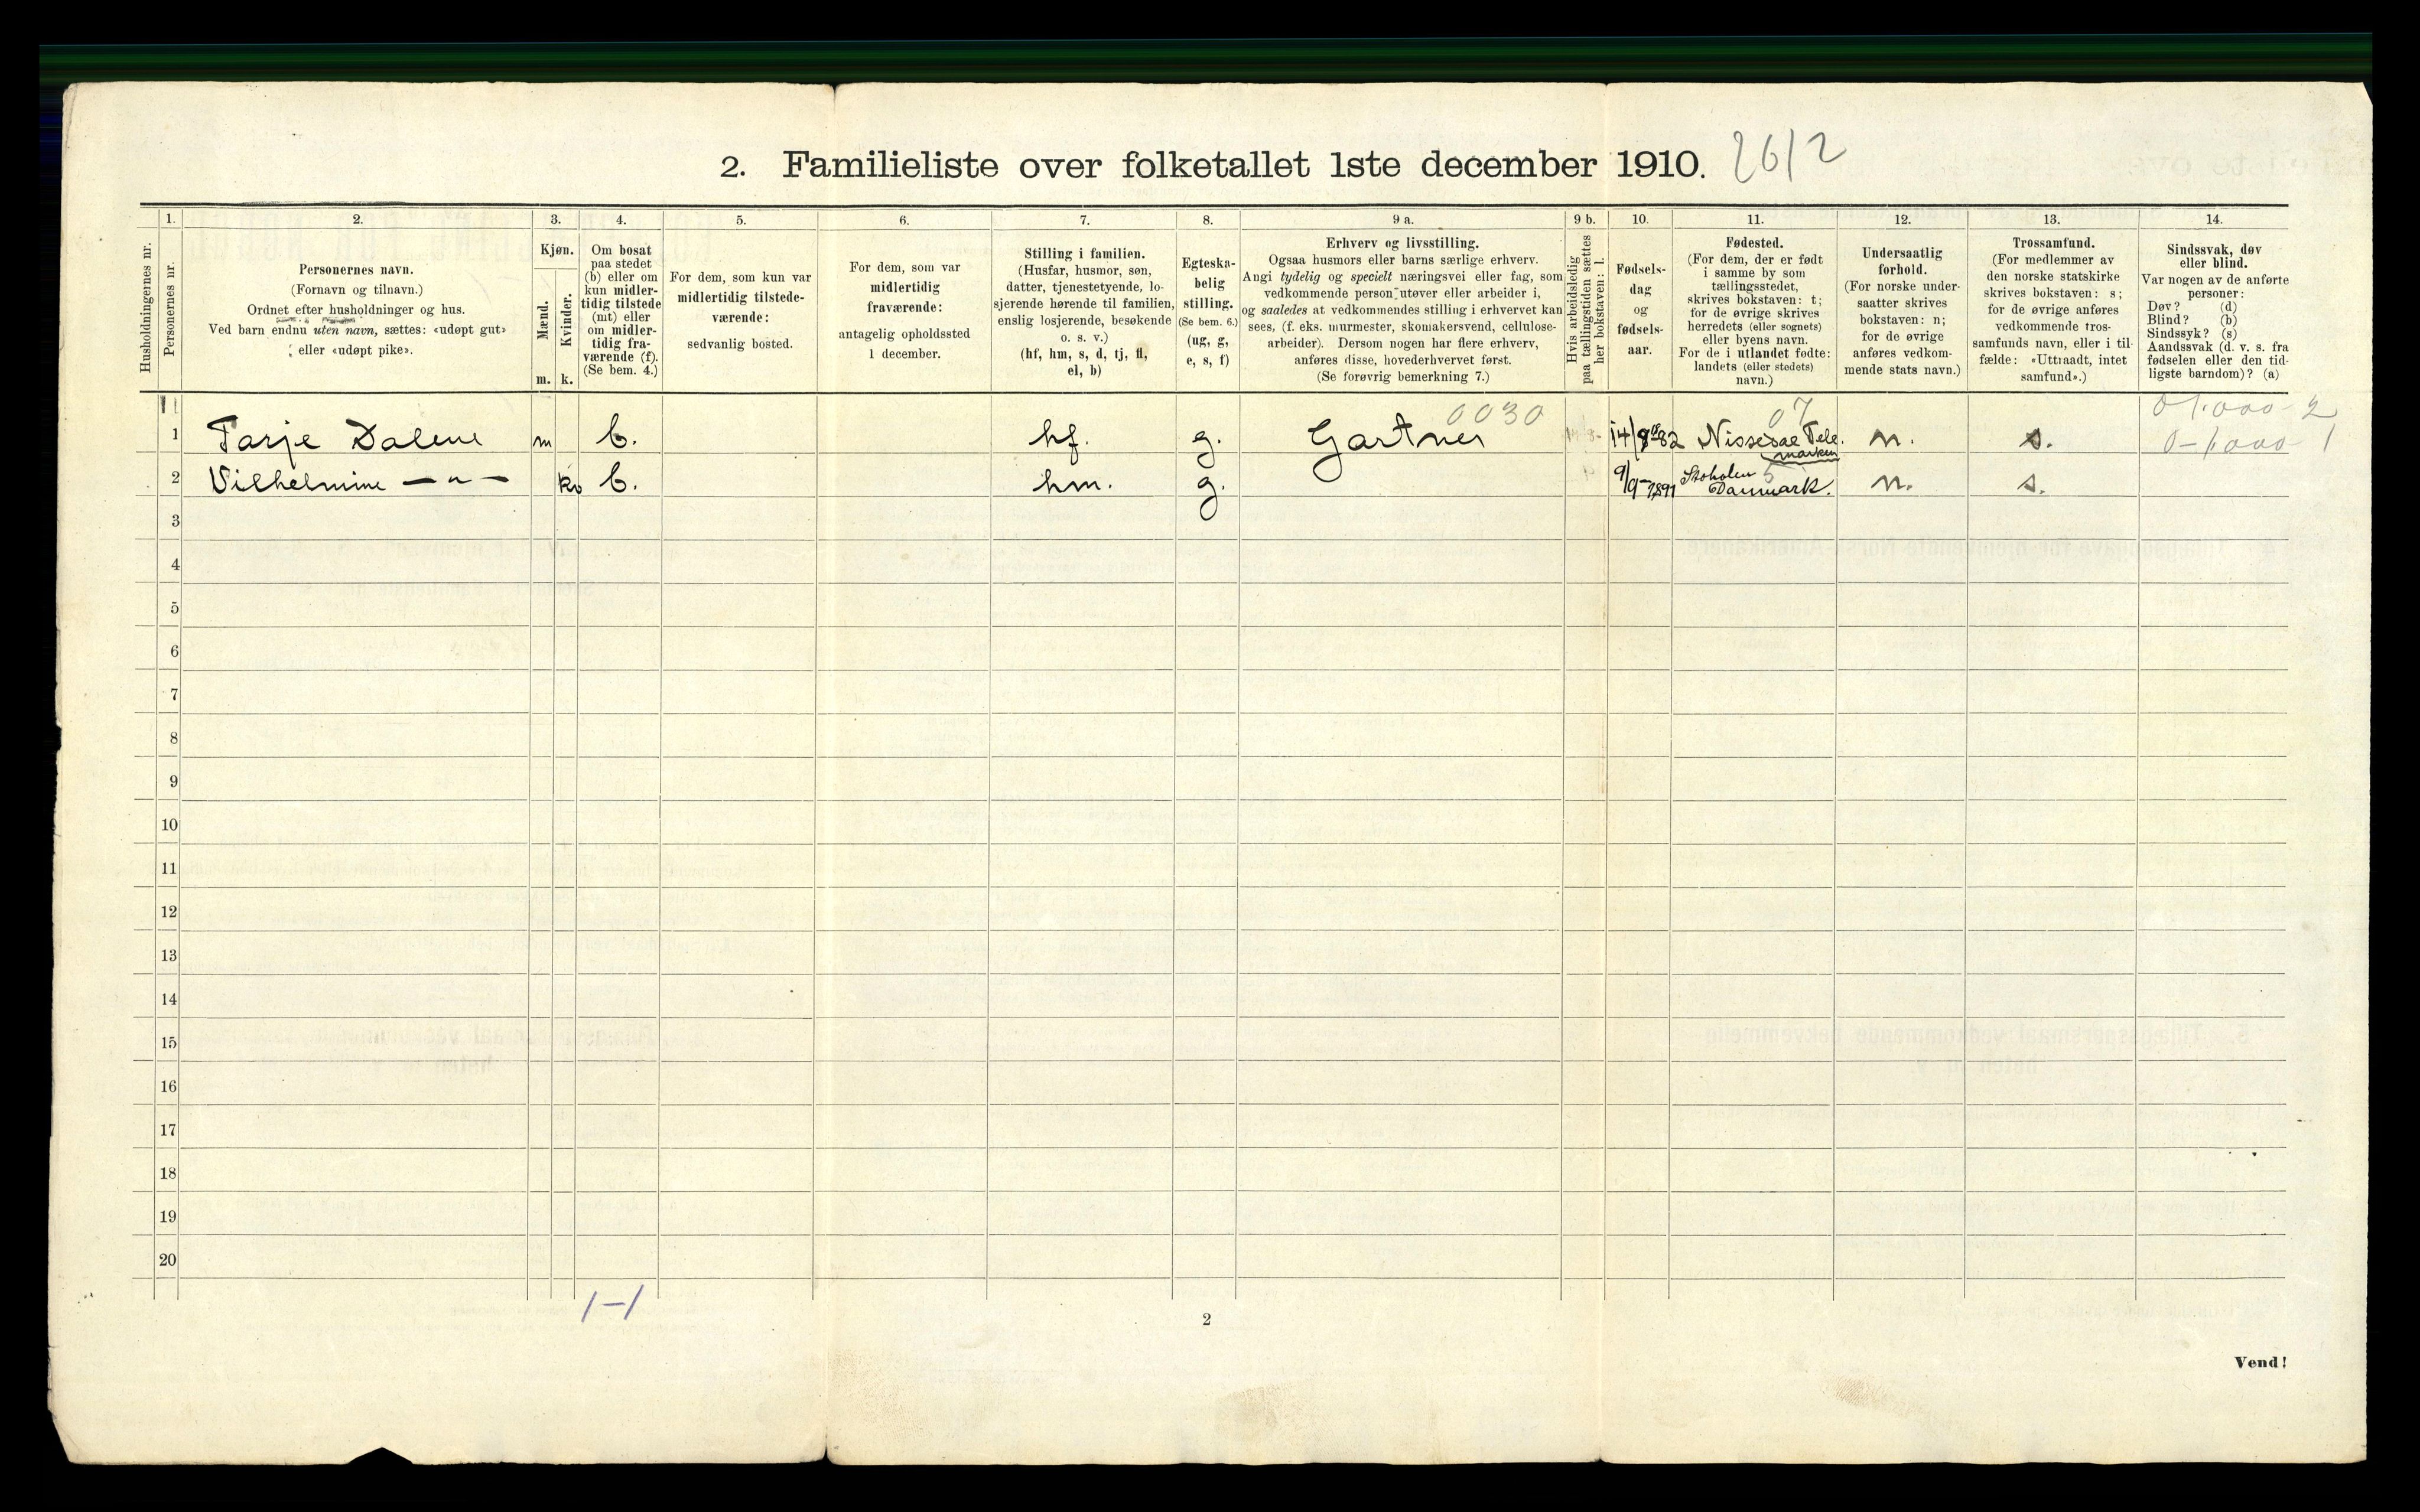 2. Familieliste over folketallet 1ste december 1910. 2612
Husholdningernes nr.
1.
Personernes nr.
2.
Personernes navn.
(Fornavn og tilnavn.)
Ordnet efter husholdninger og hus.
Ved barn endnu uten navn, sættes: «udøpt gut»
eller «udøpt pike».
3.
Kjøn.
Mænd.
Kvinder.
m. k.
4.
Om bosat
paa stedet
(b) eller om
kun midler-
tidig tilstede
(mt) eller
om midler-
tidig fra-
værende (f).
(Se bem. 4.)
5.
For dem, som kun var
midlertidig tilstede-
værende:
sedvanlig bosted.
6.
For dem, som var
midlertidig
fraværende:
antagelig opholdssted
1 december.
7.
Stilling i familien.
(Husfar, husmor, søn,
datter, tjenestetyende, lo-
sjerende hørende til familien,
enslig losjerende, besøkende
o. s. v.)
(hf, hm, s, d, tj, fl,
el, b)
8.
Egteska-
belig
stilling.
(Se bem. 6.)
(ug, g,
e, s, f)
9 a.
Erhverv og livsstilling.
Ogsaa husmors eller barns særlige erhverv.
Angi tydelig og specielt næringsvei eller fag, som
vedkommende person utøver eller arbeider i,
og saaledes at vedkommendes stilling i erhvervet kan
sees, (f. eks. murmester, skomakersvend, cellulose-
arbeider). Dersom nogen har flere erhverv,
anføres disse, hovederhvervet først.
(Se forøvrig bemerkning 7.)
9 b.
Hvis arbeidsledig
paa tællingstiden sættes
her bokstaven: l.
10.
Fødsels-
dag
og
fødsels-
aar.
11.
Fødested.
(For dem, der er født
i samme by som
tællingsstedet,
skrives bokstaven: t;
for de øvrige skrives
herredets (eller sognets)
eller byens navn.
For de i utlandet fødte:
landets (eller stedets)
navn.)
12.
Undersaatlig
forhold.
(For norske under-
saatter skrives
bokstaven: n;
for de øvrige
anføres vedkom-
mende stats navn.)
13.
Trossamfund.
(For medlemmer av
den norske statskirke
skrives bokstaven: s;
for de øvrige anføres
vedkommende tros-
samfunds navn, eller i til-
fælde: «Uttraadt, intet
samfund».)
14.
Sindssvak, døv
eller blind.
Var nogen av de anførte
personer:
Døv? (d)
Blind? (b)
Sindssyk? (s)
Aandssvak (d. v. s. fra
fødselen eller den tid-
ligste barndom)? (a)
0030 07
1 Tarje Dalene m b. hf. g. Gartner Nissedal Tele. n. s.
marken
2 Vilhelmine — " — k b. hm. g. 9/9-1891 Danmark. n. s.
3
4
5
6
7
8
9
10
11
12
13
14
15
16
17
18
19
20
1-1
2
Vend!